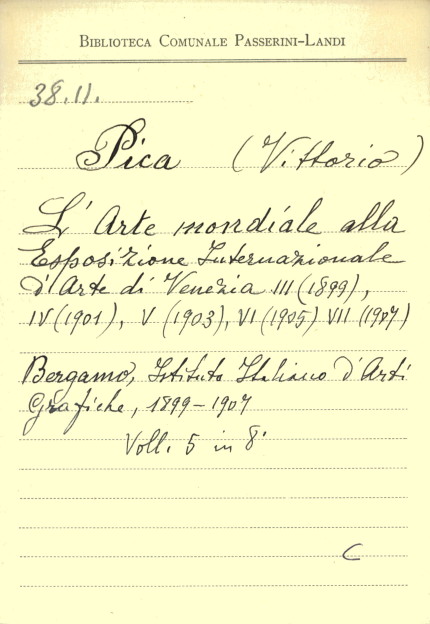 BIBLIOTECA COMUNALE PASSERINI-LANDI
38.11.
Pica (Vittorio)
L'Arte mondiale alla
Esposizione Internazionale
d'Arte di Venezia III (1899),
IV (1901), V (1903), VI (1905) VII (1907)
Bergamo, Istituto Italiano d'Arti
Grafiche, 1899-1907
Voll. 5 in 8°
C